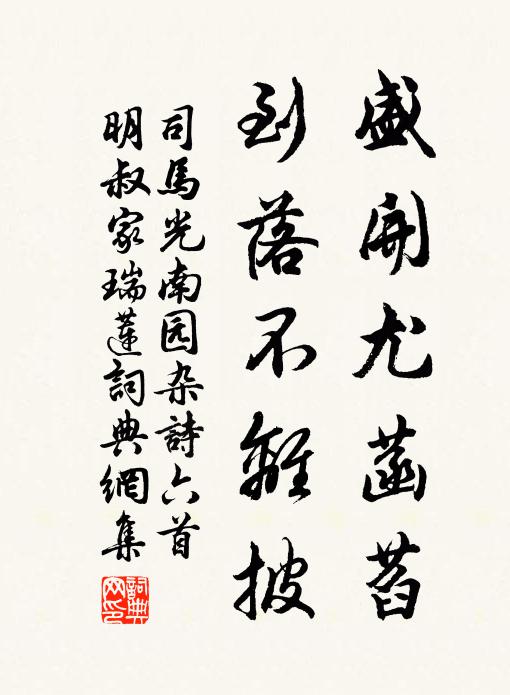 盛開尤菡萏
到落不離披
司馬光南园杂詩六首
明叔家瑞蓮詞典網集
詞典网印